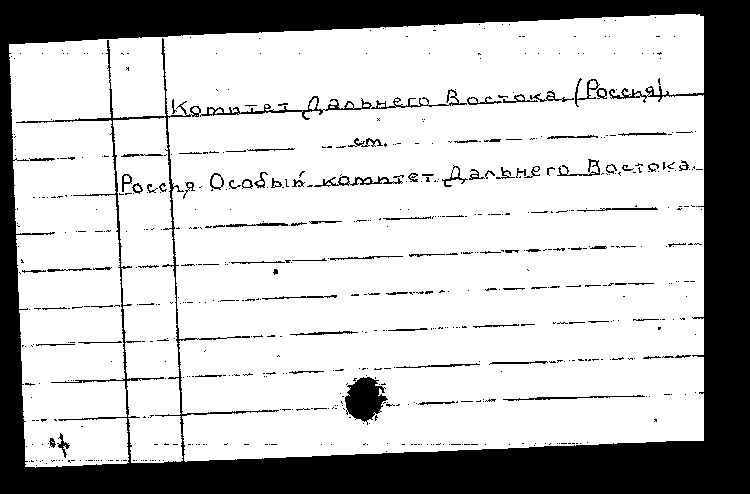 Комитет Дальнего Востока. (Россия).
см.
Россия. Особый комитет Дальнего Востока.